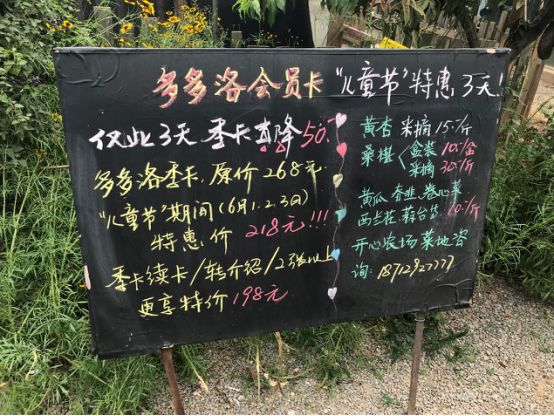 多多洛会员卡 "儿童节"特惠3天!
仅此3天 季卡直降50元
多多洛季卡 原价268元
"儿童节"期间(6月1.2.3日)
特惠价 218元!!!
季卡续卡/转介绍/2张以上
更享特价198元
黄杏 采摘15元/斤
桑椹 盒装10元/盒
采摘30元/斤
黄瓜 香韭 卷心菜
西兰花 蒜台苔 10元/斤
开心农场菜地咨
询:18712927777